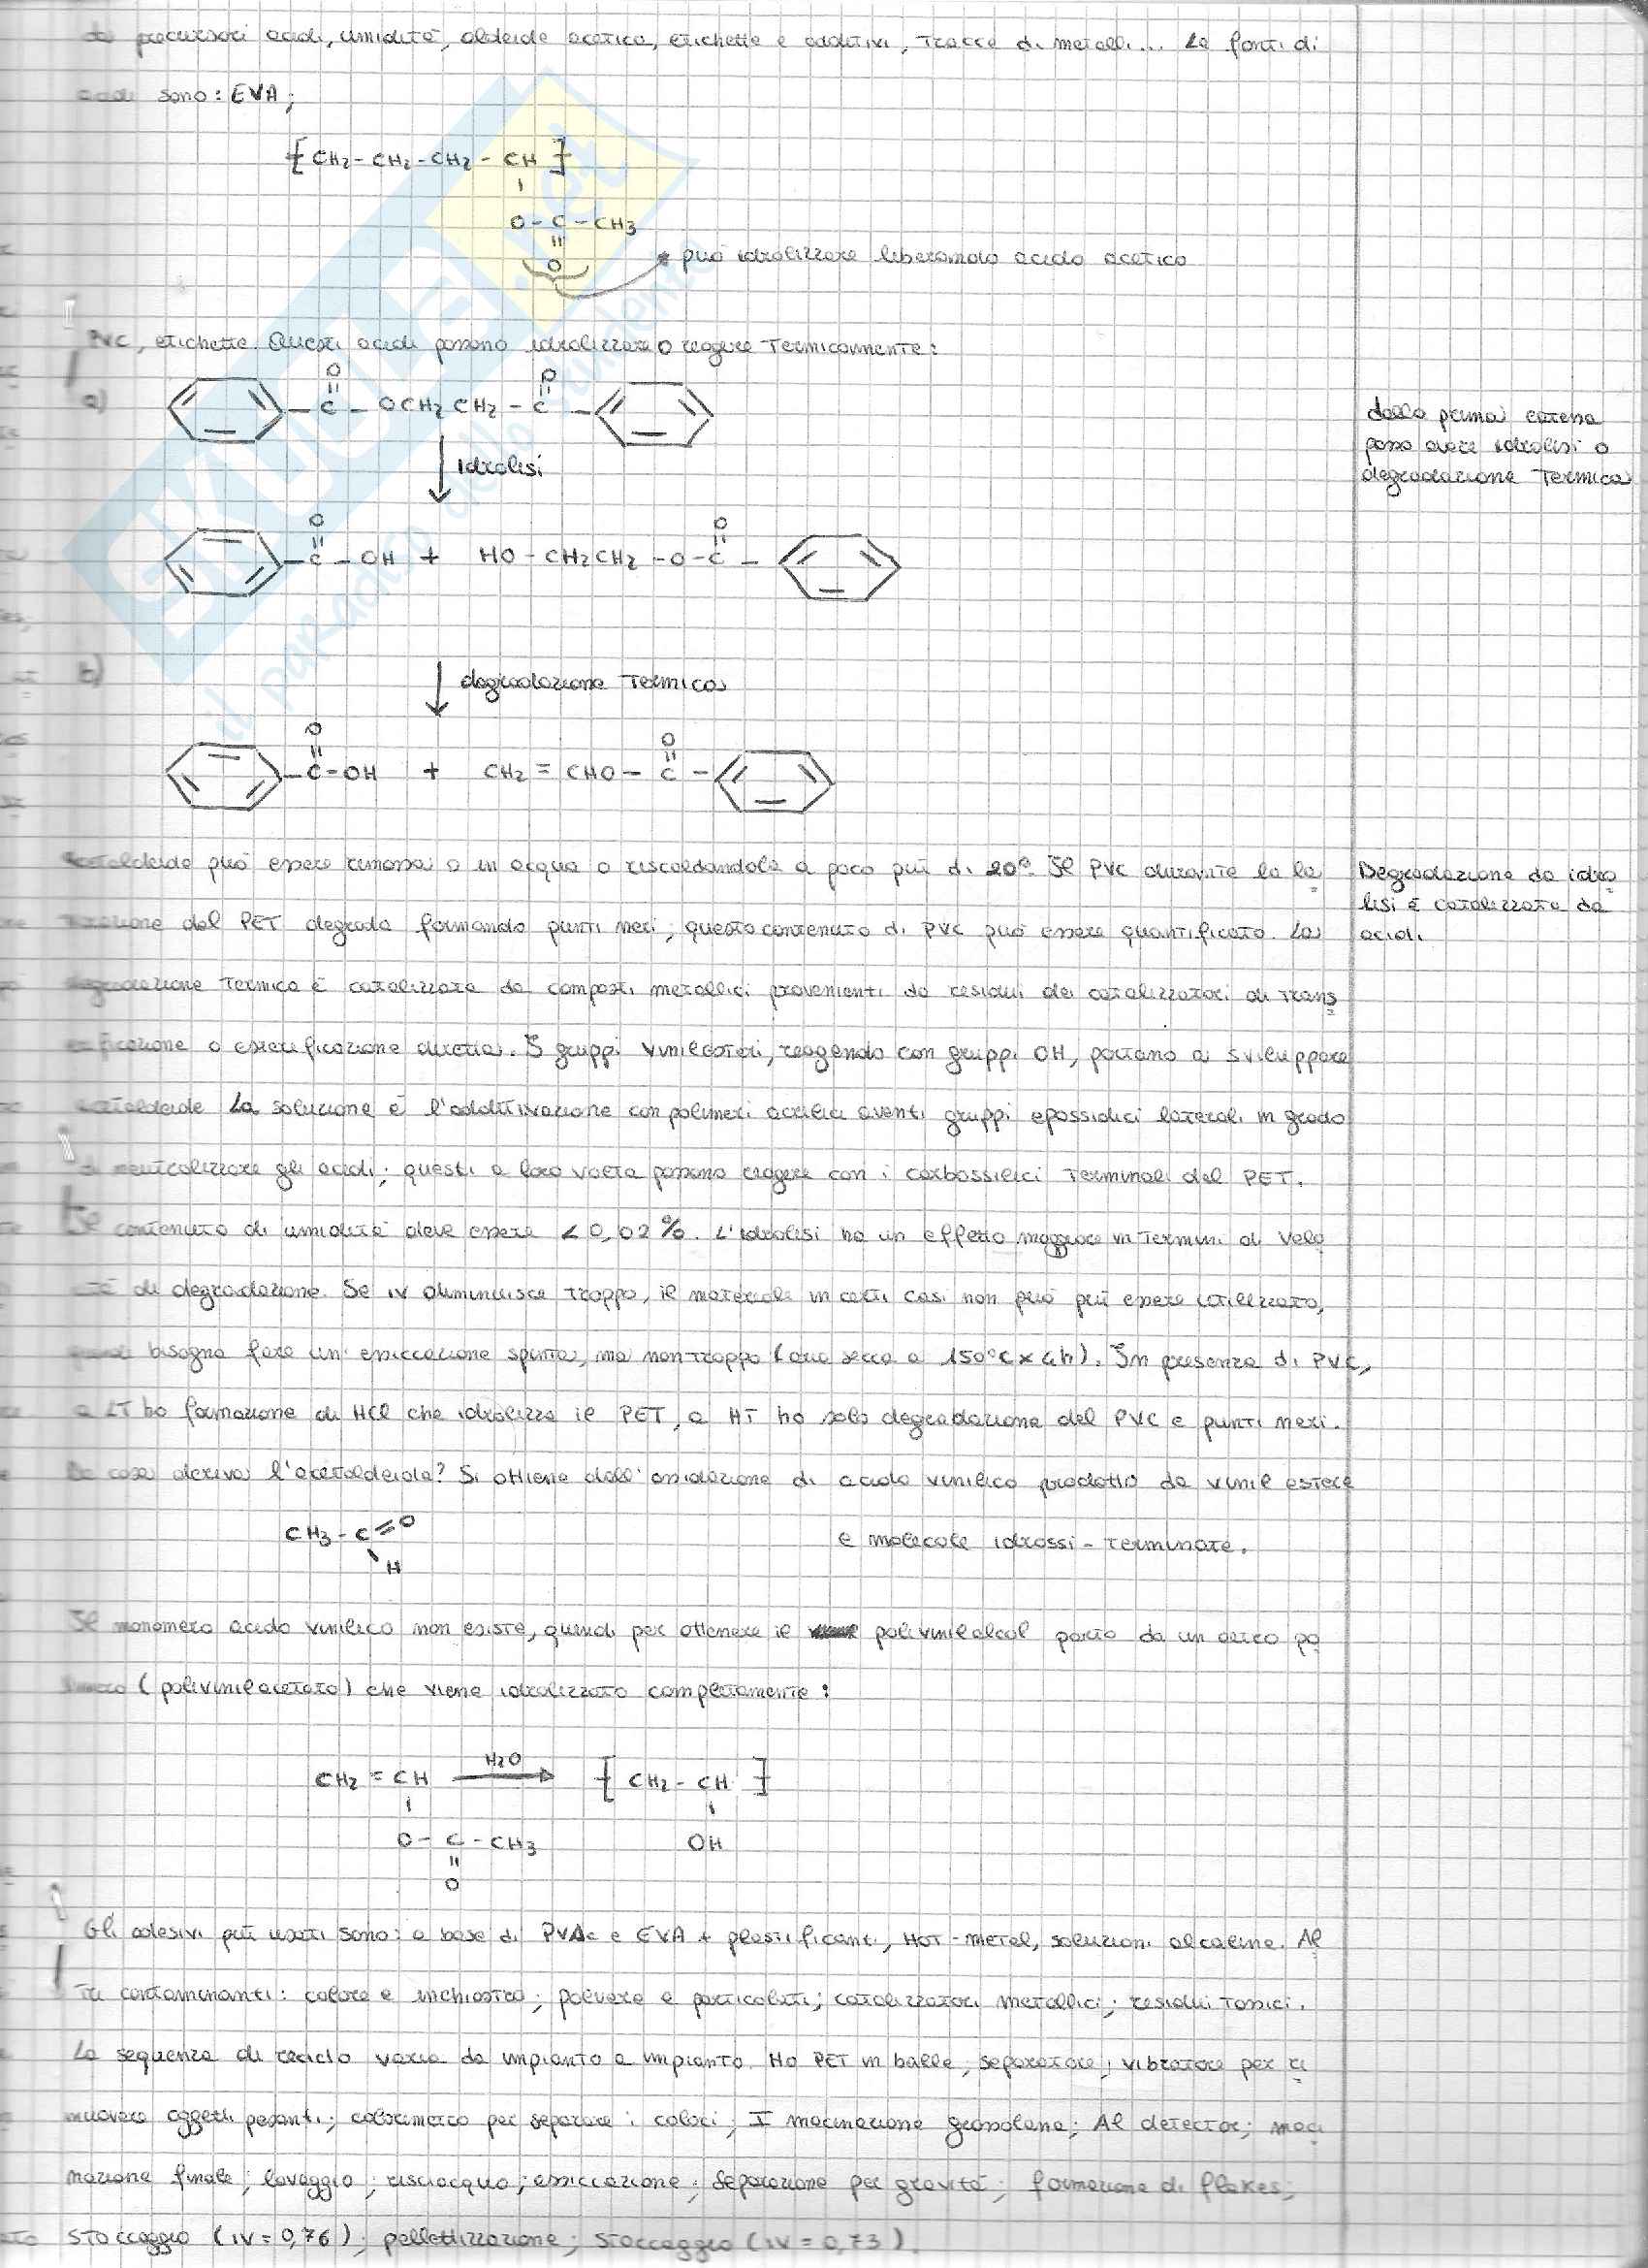 da precursori acidi, umidità, aldeide acetica, etichette e additivi, tracce di metalli... Le fonti di
acidi sono: EVA;
[ CH2 - CH2 - CH2 - CH ]
O - C - CH3
O
può idrolizzare liberando acido acetico
PVC, etichette. Questi acidi possono idrolizzare o reagire termicamente:
a)
O O
- C - OCH2 CH2 - C -
dalla prima catena
posso avere idrolisi o
degradazione termica
idrolisi
O O
- C - OH + HO - CH2CH2 - O - C -
b)
degradazione termica
O O
- C - OH + CH2 = CHO - C -
Acetaldeide può essere rimossa o in acqua o riscaldandola a poco più di 20°. Il PVC durante la la
Degradazione da idro
lisi è catalizzata da
acidi.
vorazione del PET degrada formando punti neri; questo contenuto di PVC può essere quantificato. La
degradazione termica è catalizzata da composti metallici provenienti da residui dei catalizzatori di trans
esterificazione o esterificazione diretta. I gruppi vinilesteri, reagendo con gruppi OH, portano a sviluppare
acetaldeide La soluzione è l'additivazione con polimeri acrilici aventi gruppi epossidici laterali in grado
di neutralizzare gli acidi; questi a loro volta possono reagire con i carbossilici terminali del PET.
Il contenuto di umidità deve essere < 0,02%. L'idrolisi ha un effetto maggiore in termini di velo
cità di degradazione. Se IV diminuisce troppo, il materiale in certi casi non può più essere utilizzato,
quindi bisogna fare un'essiccazione spinta, ma non troppo (aria secca a 150°C x 4h). In presenza di PVC,
a LT ho formazione di HCl che idrolizza il PET, a HT ho solo degradazione del PVC e punti neri.
Da cosa deriva l'acetaldeide? Si ottiene dall'ossidazione di acido vinilico prodotto da vinil estere
CH3 - C = O
H
e molecole idrossi-terminate.
Il monomero acido vinilico non esiste, quindi per ottenere il polivinilalcol parto da un altro po
limero (polivinilacetato) che viene idrolizzato completamente:
CH2 = CH H2O [ CH2 - CH ]
O - C - CH3 OH
O
Gli adesivi più usati sono: a base di PVAc e EVA + plastificanti, HOT-METAL, soluzioni alcaline. Al
tri contaminanti: colore e inchiostro; polvere e particolati; catalizzatori metallici; residui tossici.
La sequenza di riciclo varia da impianto a impianto. Ho PET in balle; separatore; vibratore per ri
muovere oggetti pesanti; colorimetro per separare i colori; I macinazione grossolana; Al detector; maci
nazione finale; lavaggio; risciacquo; essiccazione; separazione per gravità; formazione di flakes;
stoccaggio (IV = 0,76); pellettizzazione; stoccaggio (IV = 0,73).